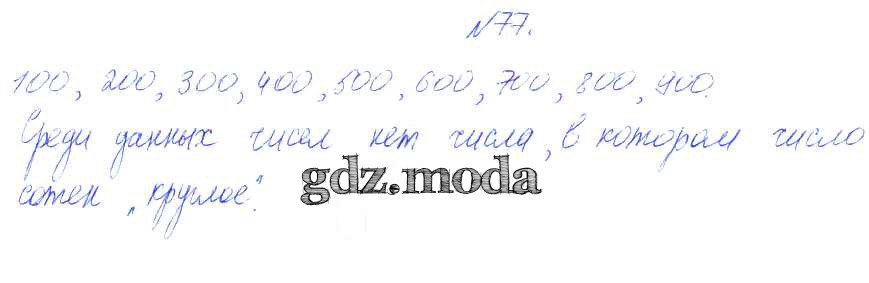 №77.
100, 200, 300, 400, 500, 600, 700, 800, 900.
Среди данных чисел нет числа, в котором число
сотен „круглое“.
gdz.moda